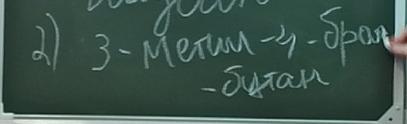 2) 3-метил-4-бром
-бутан